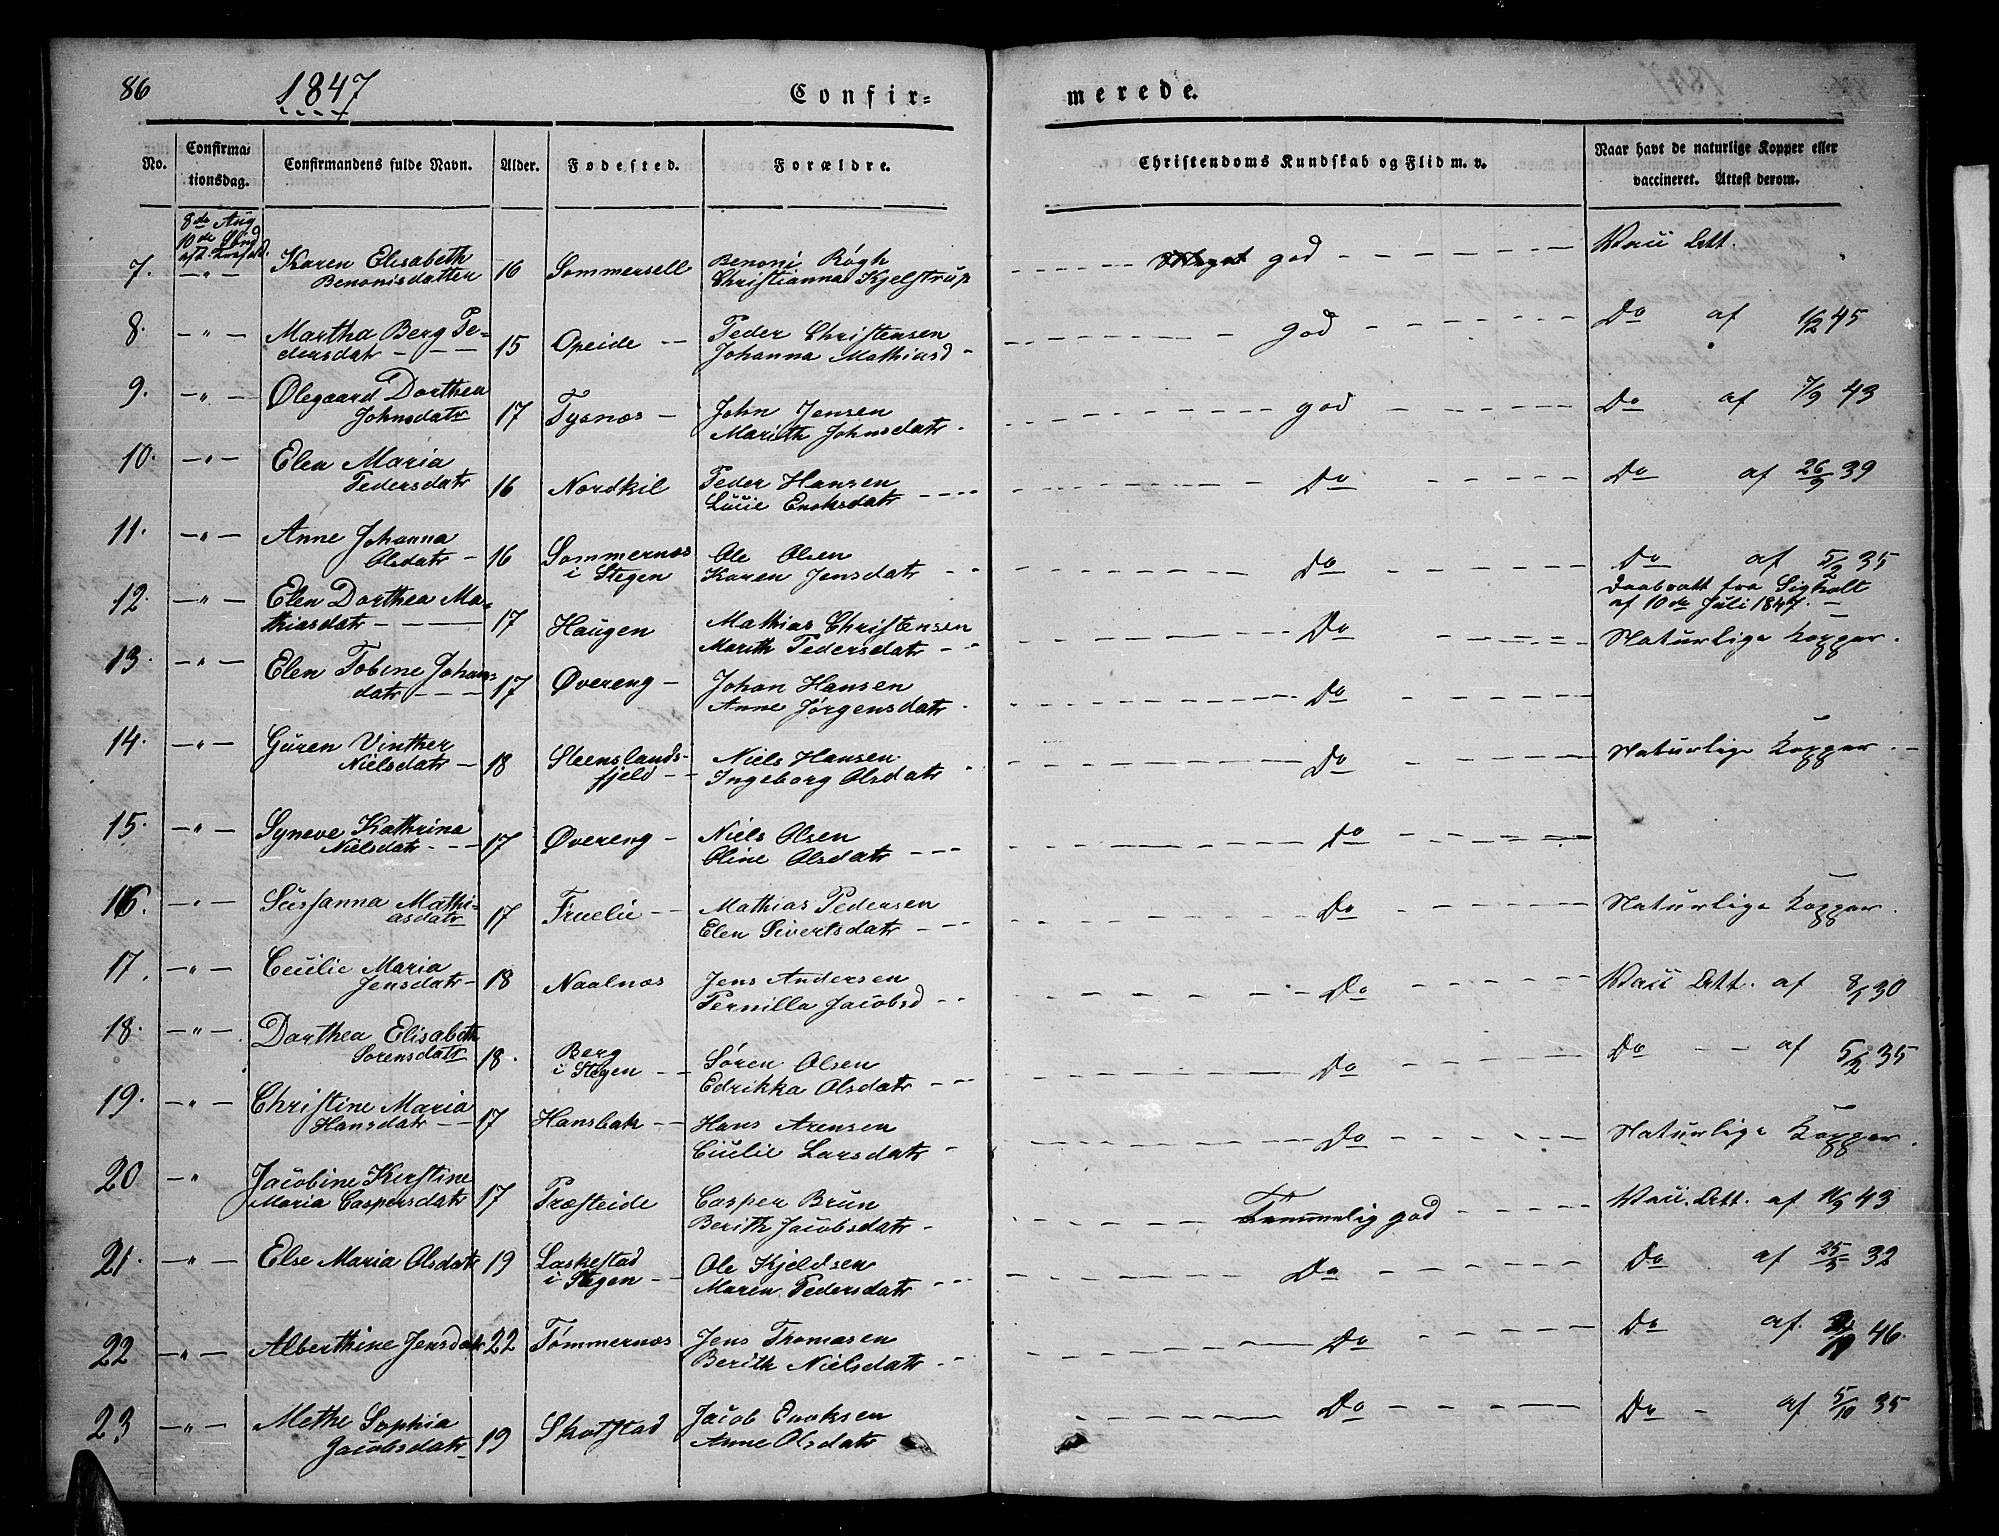 86 1847 Confir= merede.
No. Confirma= tionsdag. Confirmandens fulde Navn. Alder. Fødested. Forældre. Christendoms Kundskab og Flid m. v. Naar havt de naturlige Kopper eller vaccineret. Attest derom.
8de Aug
10de
7. -"- Karen Elisabeth Benonisdatter 16 Sommersell Benoni Røgh Christianna Kjelstrup god Vacc Att.
8. -"- Martha Berg Pe= dersdatr 15 Opeide Peder Christensen Johanna Mathiasd god Do af 1/2 45
9. -"- Olegaard Dorthea Johnsdatr 17 Tysnæs John Jensen Marith Johnsdatr god Do af 7/9 43
10. -"- Elen Maria Pedersdatr 16 Nordkil Peder Hansen Lucie Enoksdatr Do Do af 26/9 39
11. -"- Anne Johanna Olsdatr 16 Sommernæs i Stegen Ole Olsen Karen Jensdatr Do Do af 5/2 35
12. -"- Elen Dorthea Ma= thiasdatr 17 Haugen Mathias Christensen Marith Pedersdatr Do Daabsatt fra Sigholt af 10de Juli 1847.
13. -"- Elen Tobine Johans datr 17 Øvereng Johan Hansen Anne Jørgensdatr Do Naturlige Kopper.
14. -"- Guren Vinther Nielsdatr 18 Steenslands- fjeld Niels Hansen Ingeborg Olsdatr Do Naturlige Kopper.
15. -"- Syneve Kathrina Nielsdatr 17 Øvereng Niels Olsen Oline Olsdatr Do
16. -"- Susanna Mathi= asdatr 17 Fruelie Mathias Pedersen Elen Sivertsdatr Do Naturlige Kopper.
17. -"- Cecilie Maria Jensdatr 18 Naalnæs Jens Andersen Pernilla Jacobsd Do Vacc Att. af 30
18. -"- Dorthea Elisabeth Sorensdatr 18. Berg i Stegen Søren Olsen Edrikka Olsdatr Do Do af 5/2 35
19. -"- Christine Maria Hansdatr 17 Hansbak Hans Arensen Cecilie Larsdatr Do Naturlige Kopper.
20 -" Jacobine Kirstine Maria Caspersdatr 17 Præsteide Casper Brun Berith Jacobsdatr Temmelig god Vacc. Att. af 11/9 43
21. -"- Else Maria Olsdatr 19 Laskestad i Stegen Ole Kjeldsen Maren Pedersdatr Do Do af 25/5 32
22 -"- Alberthine Jensdatr 22 Tømmernæs Jens Thomasen Berith Nielsdatr Do Do af 46.
23 -"- Methe Sophia Jacobsdatr 19 Skotstad Jacob Enoksen Anne Olsdatr Do Do af 5/10 35